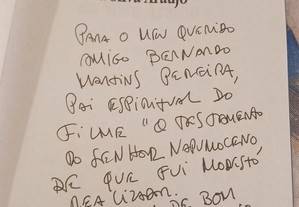 Araújo
PARA O MEU QUERIDO
AMIGO BERNARDO
MARTINS PEREIRA,
PAI ESPIRITUAL DO
FILME "O TESTAMENTO
DO SENHOR NAPUMOCENO,
DE QUE FUI MODESTO
REALIZADOR.
DE BOM